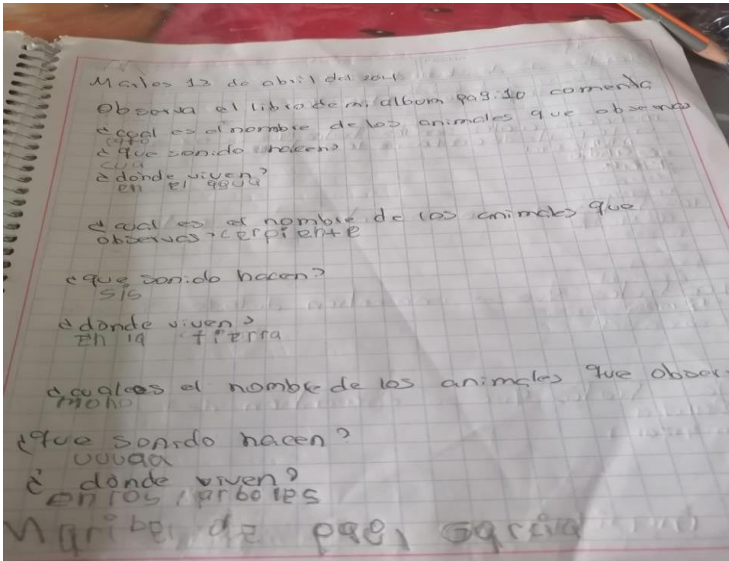 Martes 13 de abril del 2021
Observa el libro de mi album pag: 10 comenta
¿cual es el nombre de los animales que observas
pato
¿que sonido hacen?
cua
¿donde viven?
en el agua
¿cual es el nombre de los animales que
observas? cerpiente
¿que sonido hacen?
sis
¿donde viven?
en la tierra
¿cual es el nombre de los animales que obser
mono
¿que sonido hacen?
uuuaa
¿ donde viven?
en los arboles
Maribel de garcia